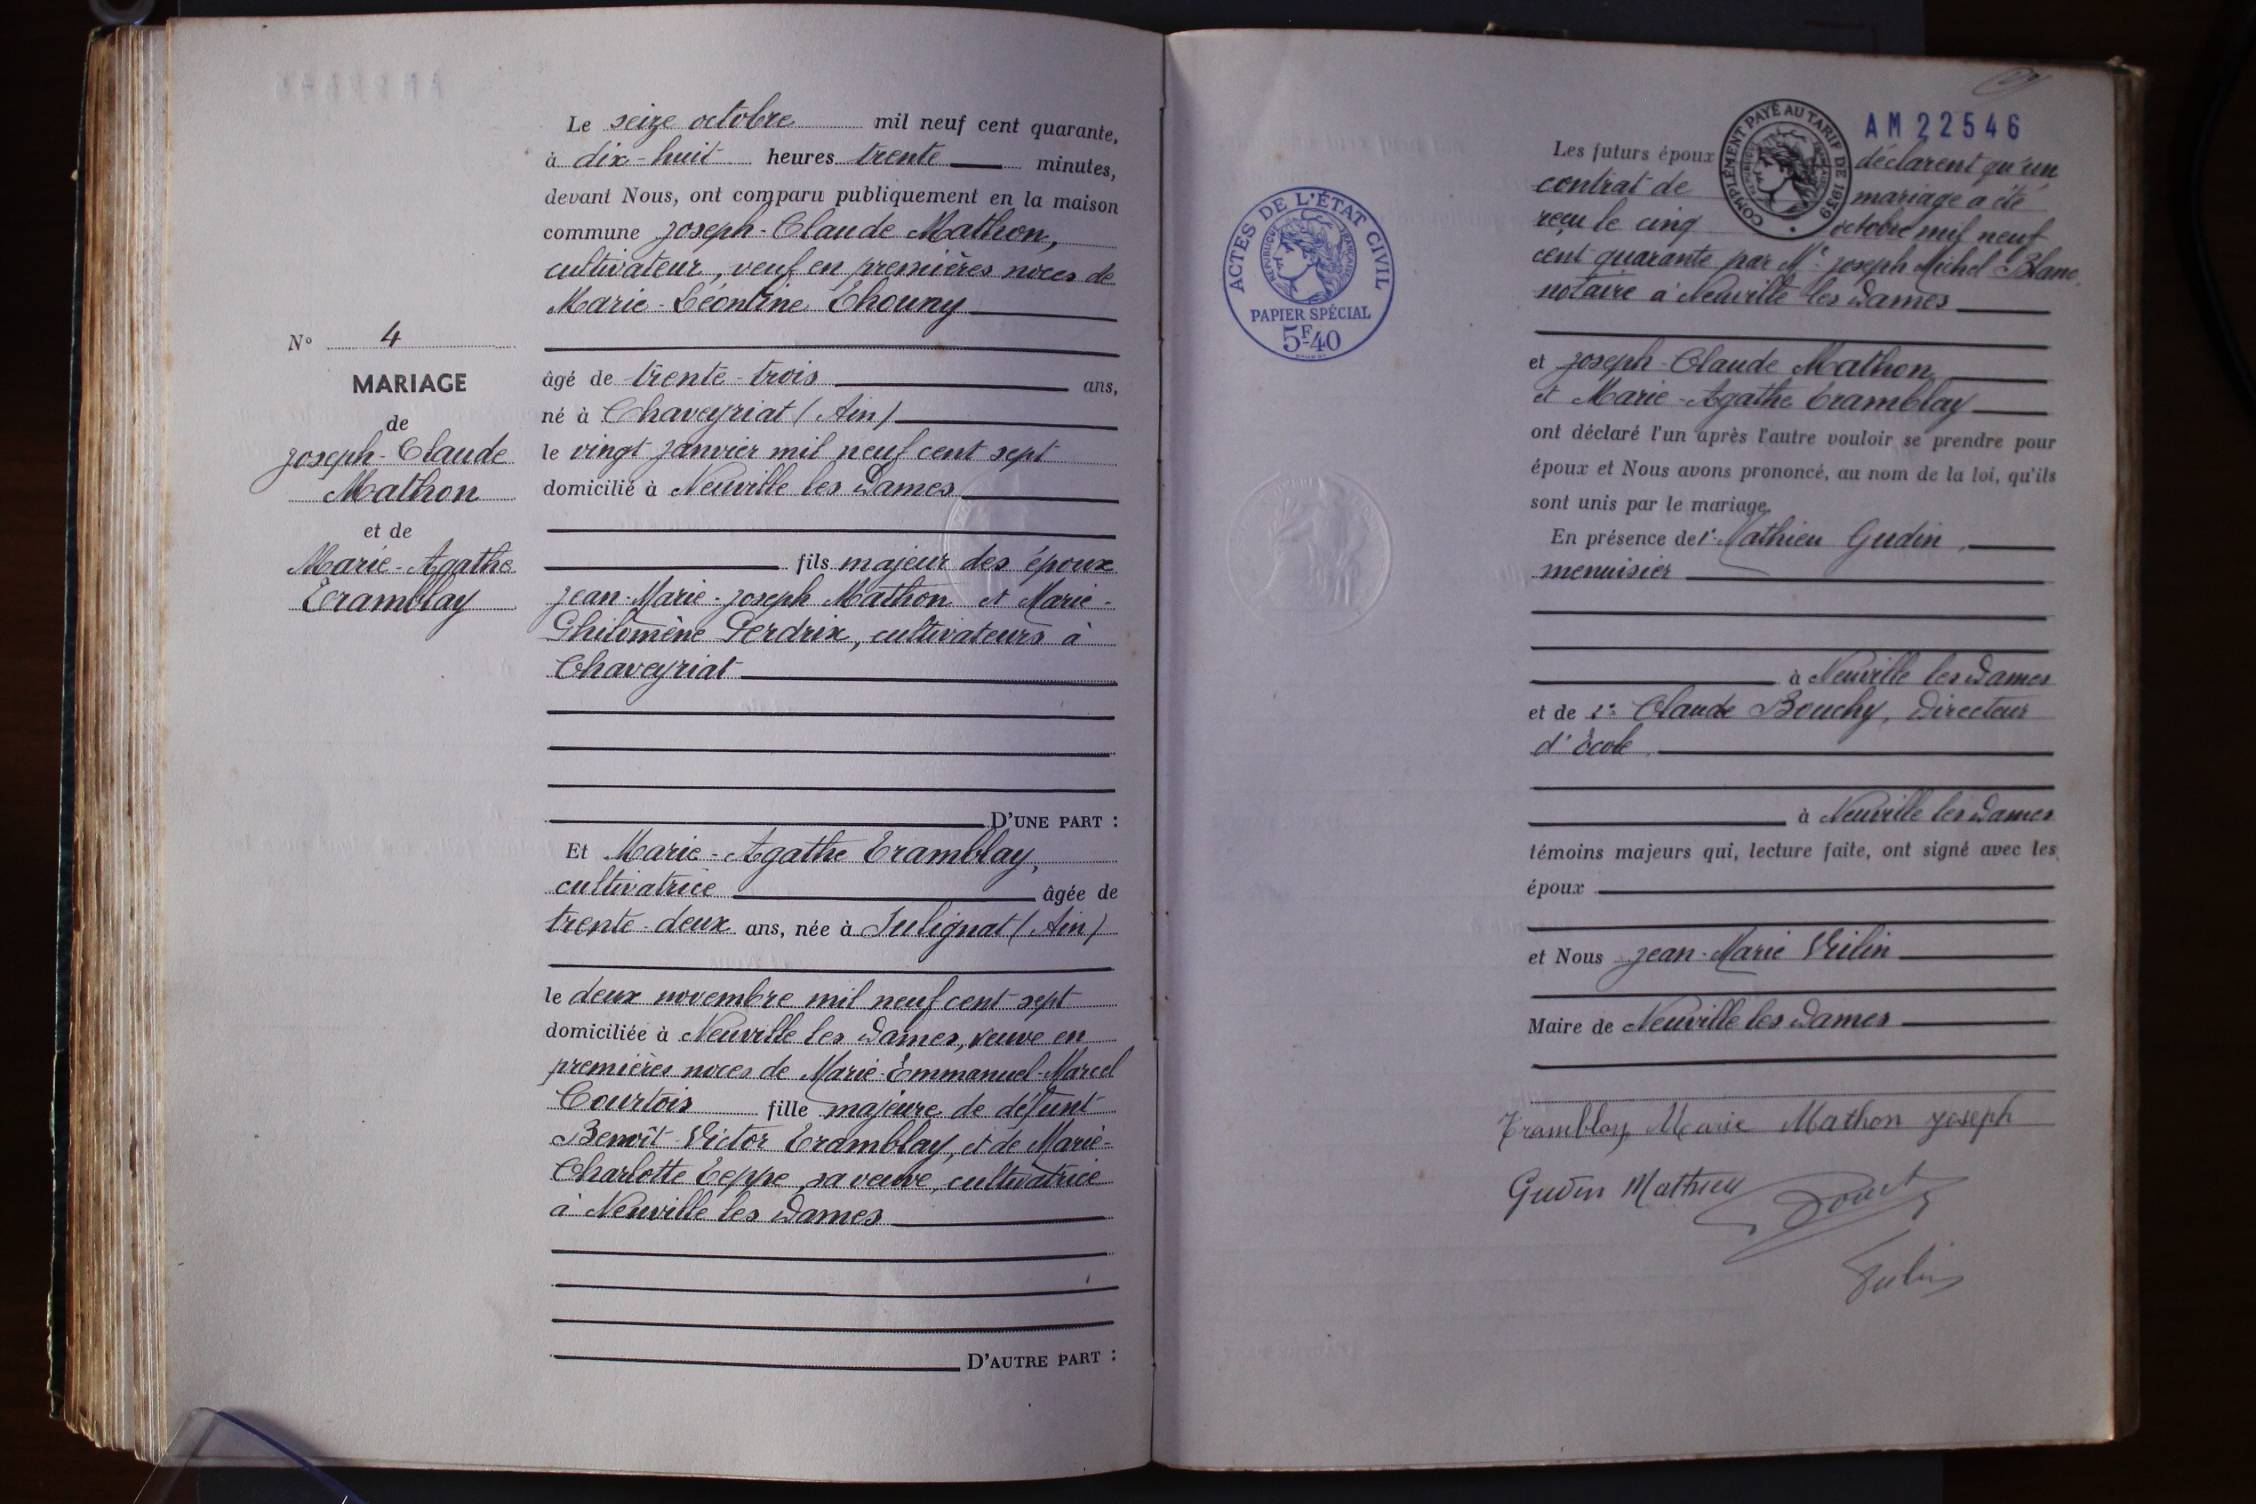 N° 4
MARIAGE
de
Joseph-Claude
Mathon
et de
Marie-Agathe
Tramblay
Le seize octobre mil neuf cent quarante,
à dix-huit heures trente minutes,
devant Nous, ont comparu publiquement en la maison
commune Joseph-Claude Mathon,
cultivateur, veuf en premières noces de
Marie-Léontine Chouny
âgé de trente-trois ans,
né à Chaveyriat (Ain)
le vingt janvier mil neuf cent sept
domicilié à Neuville les Dames
fils majeur des époux
Jean-Marie-Joseph Mathon et Marie-
Philomène Perdrix, cultivateurs à
Chaveyriat
D'UNE PART :
Et Marie-Agathe Tramblay,
cultivatrice âgée de
trente-deux ans, née à Sulignat (Ain)
le deux novembre mil neuf cent sept
domiciliée à Neuville les Dames, veuve en
premières noces de Marie-Emmanuel-Marcel
Courtois fille majeure de défunt
Benoît-Victor Tramblay, et de Marie-
Charlotte Teppe, sa veuve, cultivatrice
à Neuville les Dames
D'AUTRE PART :
AM 22546
COMPLÉMENT PAYÉ AU TARIF DE 1939
RÉPUBLIQUE FRANÇAISE
ACTES DE L'ÉTAT CIVIL
RÉPUBLIQUE FRANÇAISE
PAPIER SPÉCIAL
5F40
Les futurs époux déclarent qu'un
contrat de mariage a été
reçu le cinq octobre mil neuf
cent quarante par Me Joseph Michel Blanc,
notaire à Neuville les Dames
et Joseph-Claude Mathon
et Marie-Agathe Tramblay
ont déclaré l'un après l'autre vouloir se prendre pour
époux et Nous avons prononcé, au nom de la loi, qu'ils
sont unis par le mariage.
En présence de 1° Mathieu Gudin,
menuisier
à Neuville les Dames
et de 2° Claude Bouchy, Directeur
d'École
à Neuville les Dames
témoins majeurs qui, lecture faite, ont signé avec les
époux
et Nous Jean-Marie Vulin
Maire de Neuville les Dames
Tramblay Marie Mathon Joseph
Gudin Mathieu